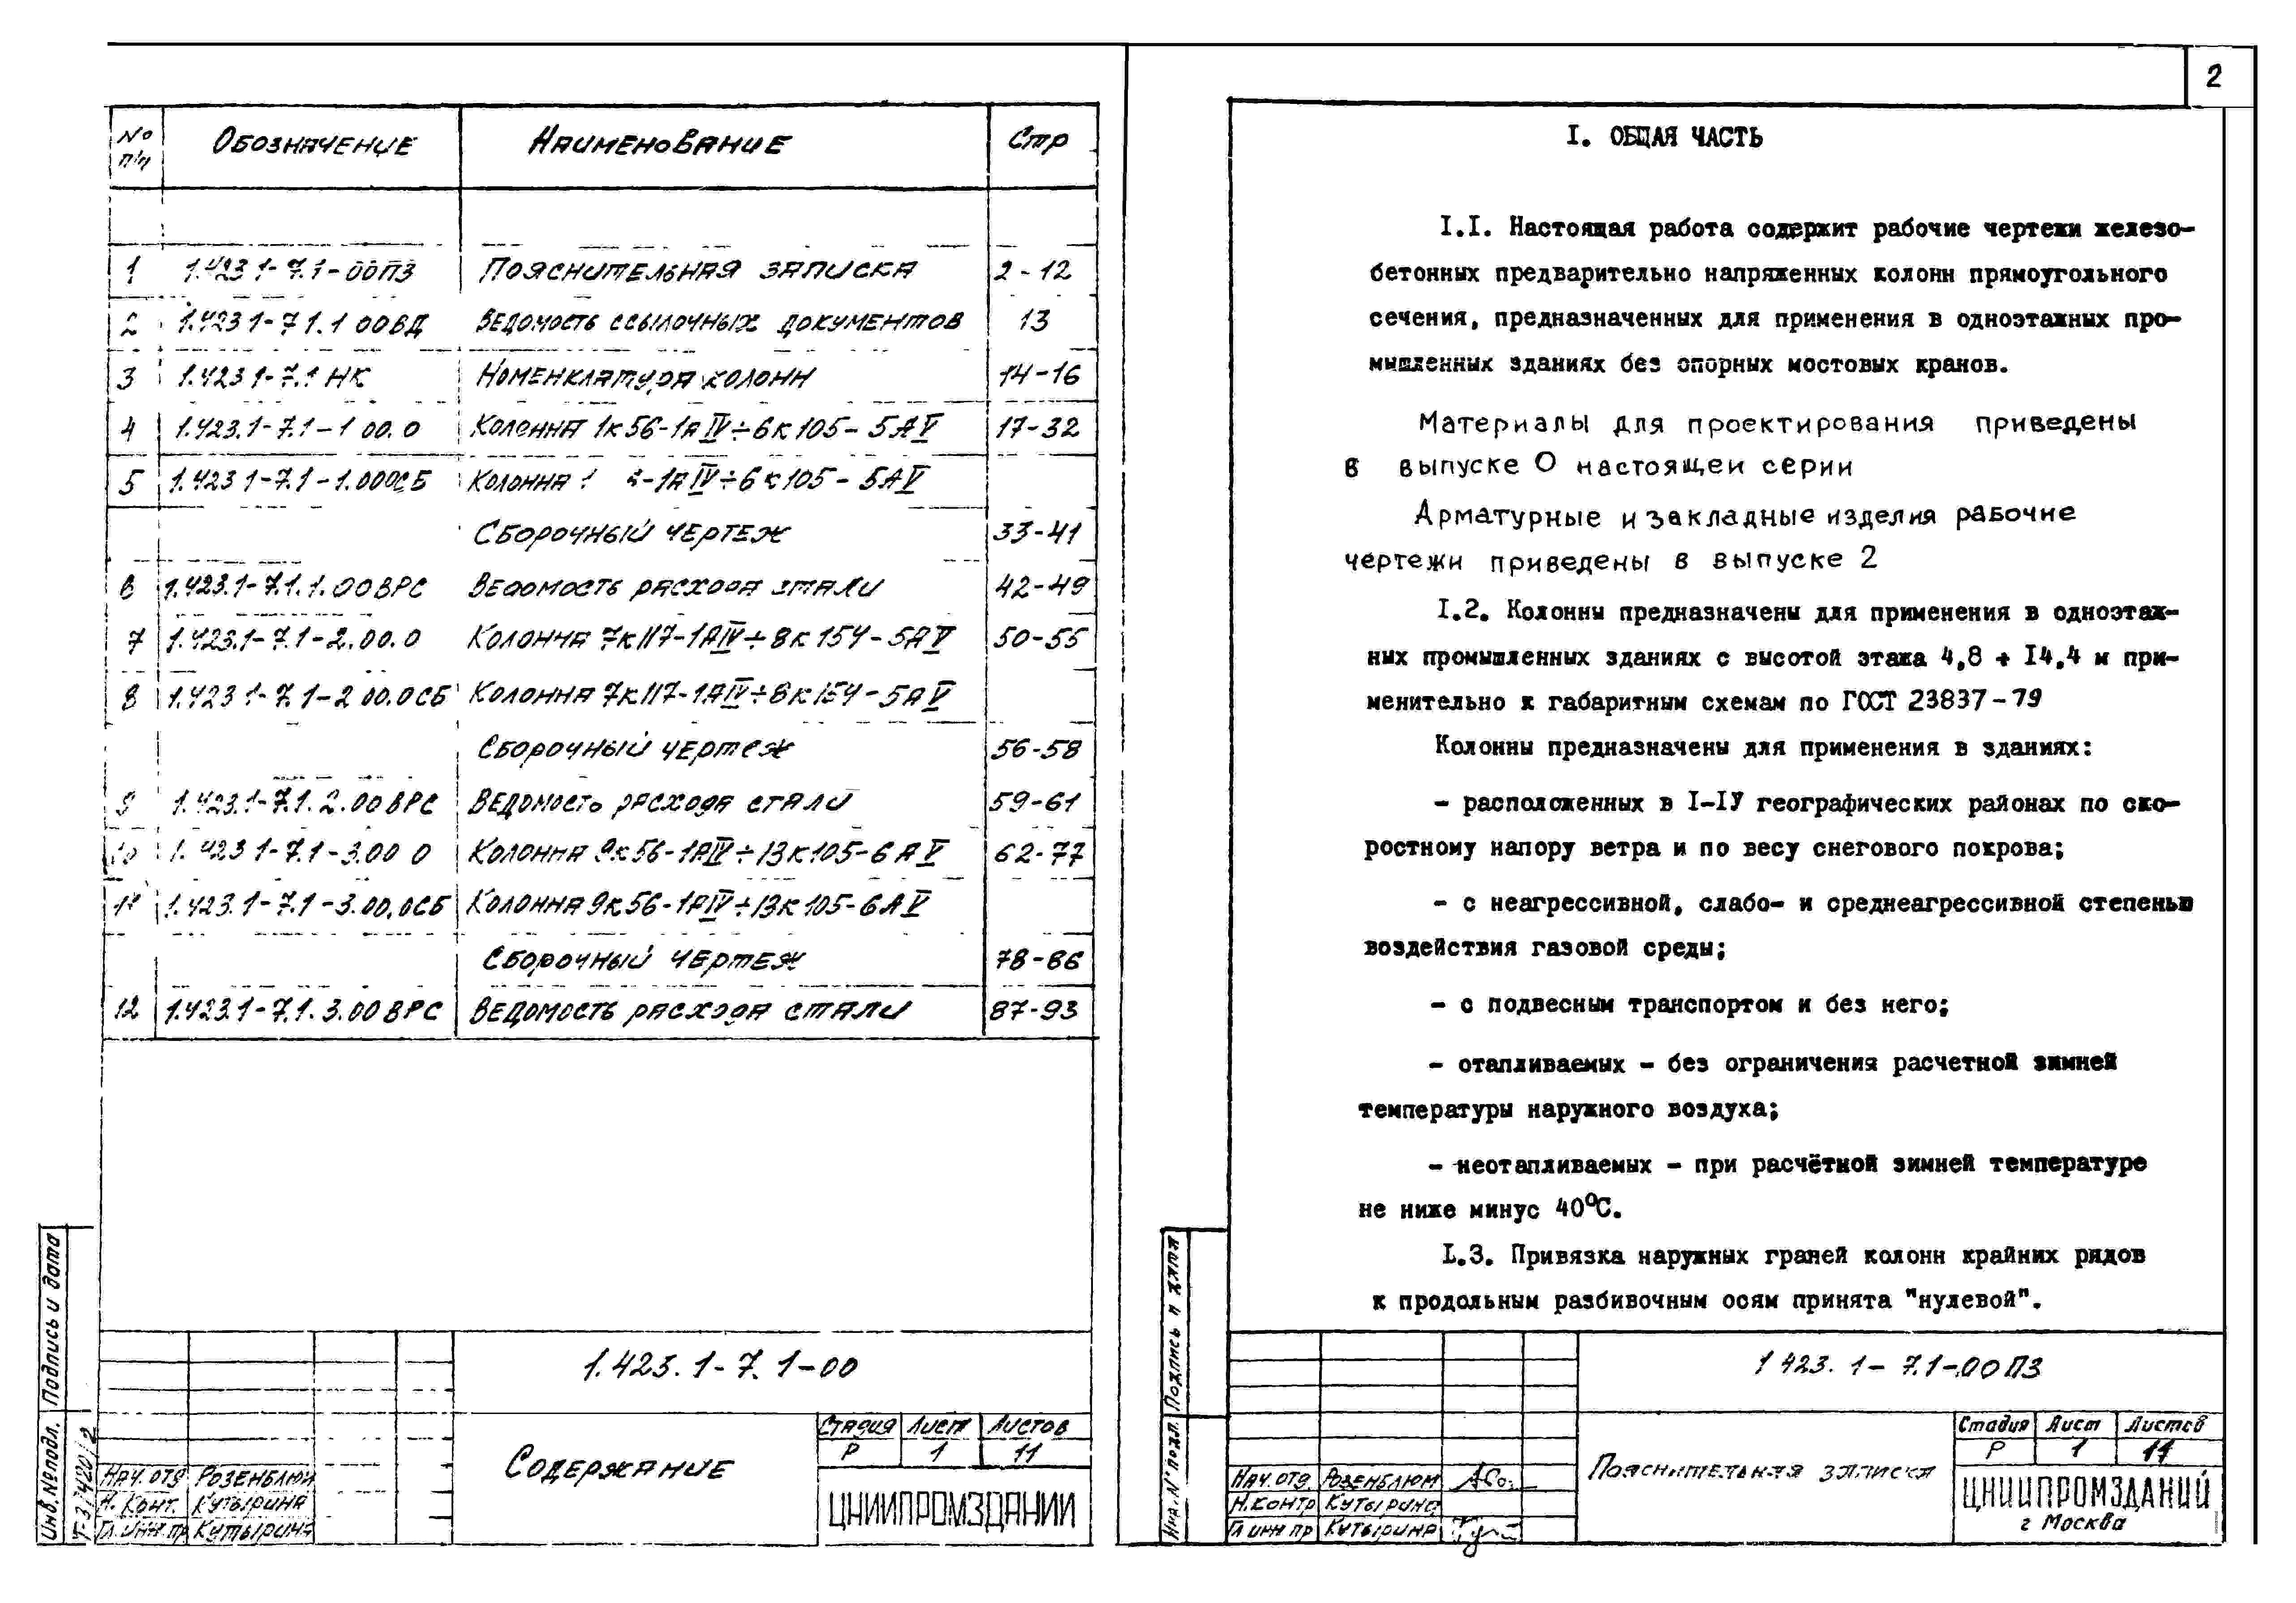 № п/п Обозначение Наименование Стр
1 1.423 1-7.1-00ПЗ Пояснительная записка 2-12
2 1.423 1-7 1.1 00ВД Ведомость ссылочных документов 13
3 1.423 1-7.1 НК Номенклатура колонн 14-16
4 1.423.1-7.1-1 00.0 Колонна 1к56-1АIV÷6к105-5АV 17-32
5 1.423 1-7.1-1.000СБ Колонна 1 -1АIV÷6к105-5АV
Сборочный чертеж 33-41
6 1.423.1-7.1.1.00ВРС Ведомость расхода стали 42-49
7 1.423.1-7.1-2.00.0 Колонна 7к117-1АIV÷8к154-5АV 50-55
8 1.423 1-7.1-2 00.0СБ Колонна 7к117-1АIV÷8к154-5АV
Сборочный чертеж 56-58
9 1.423.1-7.1.2.00ВРС Ведомость расхода стали 59-61
10 1.423 1-7.1-3.00 0 Колонна 9к56-1АIV÷13к105-6АV 62-77
11 1.423.1-7.1-3.00.0СБ Колонна 9к56-1АIV÷13к105-6АV
Сборочный чертеж 78-86
12 1.423.1-7.1.3.00ВРС Ведомость расхода стали 87-93
Инв.№подл. Подпись и дата
Т-3/420/2
1.423.1-7.1-00
Содержание
Стадия Лист Листов
Р 1 11
Нач.отд Розенблюм
Н.Конт. Кутырина
Гл.инж.пр Кутырина
ЦНИИПРОМЗДАНИИ
2
I. ОБЩАЯ ЧАСТЬ
I.I. Настоящая работа содержит рабочие чертежи железо-
бетонных предварительно напряженных колонн прямоугольного
сечения, предназначенных для применения в одноэтажных про-
мышленных зданиях без опорных мостовых кранов.
Материалы для проектирования приведены
в выпуске 0 настоящеи серии
Арматурные и закладные изделия рабочие
чертежи приведены в выпуске 2
I.2. Колонны предназначены для применения в одноэтаж-
ных промышленных зданиях с высотой этажа 4,8 + I4,4 м при-
менительно к габаритным схемам по ГОСТ 23837-79
Колонны предназначены для применения в зданиях:
- расположенных в I-IУ географических районах по ско-
ростному напору ветра и по весу снегового покрова;
- с неагрессивной, слабо- и среднеагрессивной степенью
воздействия газовой среды;
- с подвесным транспортом и без него;
- отапливаемых - без ограничения расчетной зимней
температуры наружного воздуха;
- неотапливаемых - при расчётной зимней температуре
не ниже минус 40⁰С.
I.3. Привязка наружных граней колонн крайних рядов
к продольным разбивочным осям принята "нулевой".
Инв.№подл. Подпись и дата
1 423.1-7.1-00ПЗ
Пояснительная записка
Стадия Лист Листов
Р 1 11
Нач.отд. Розенблюм
Н.контр Кутырина
Гл инж пр Кутырина
ЦНИИПРОМЗДАНИЙ
г Москва